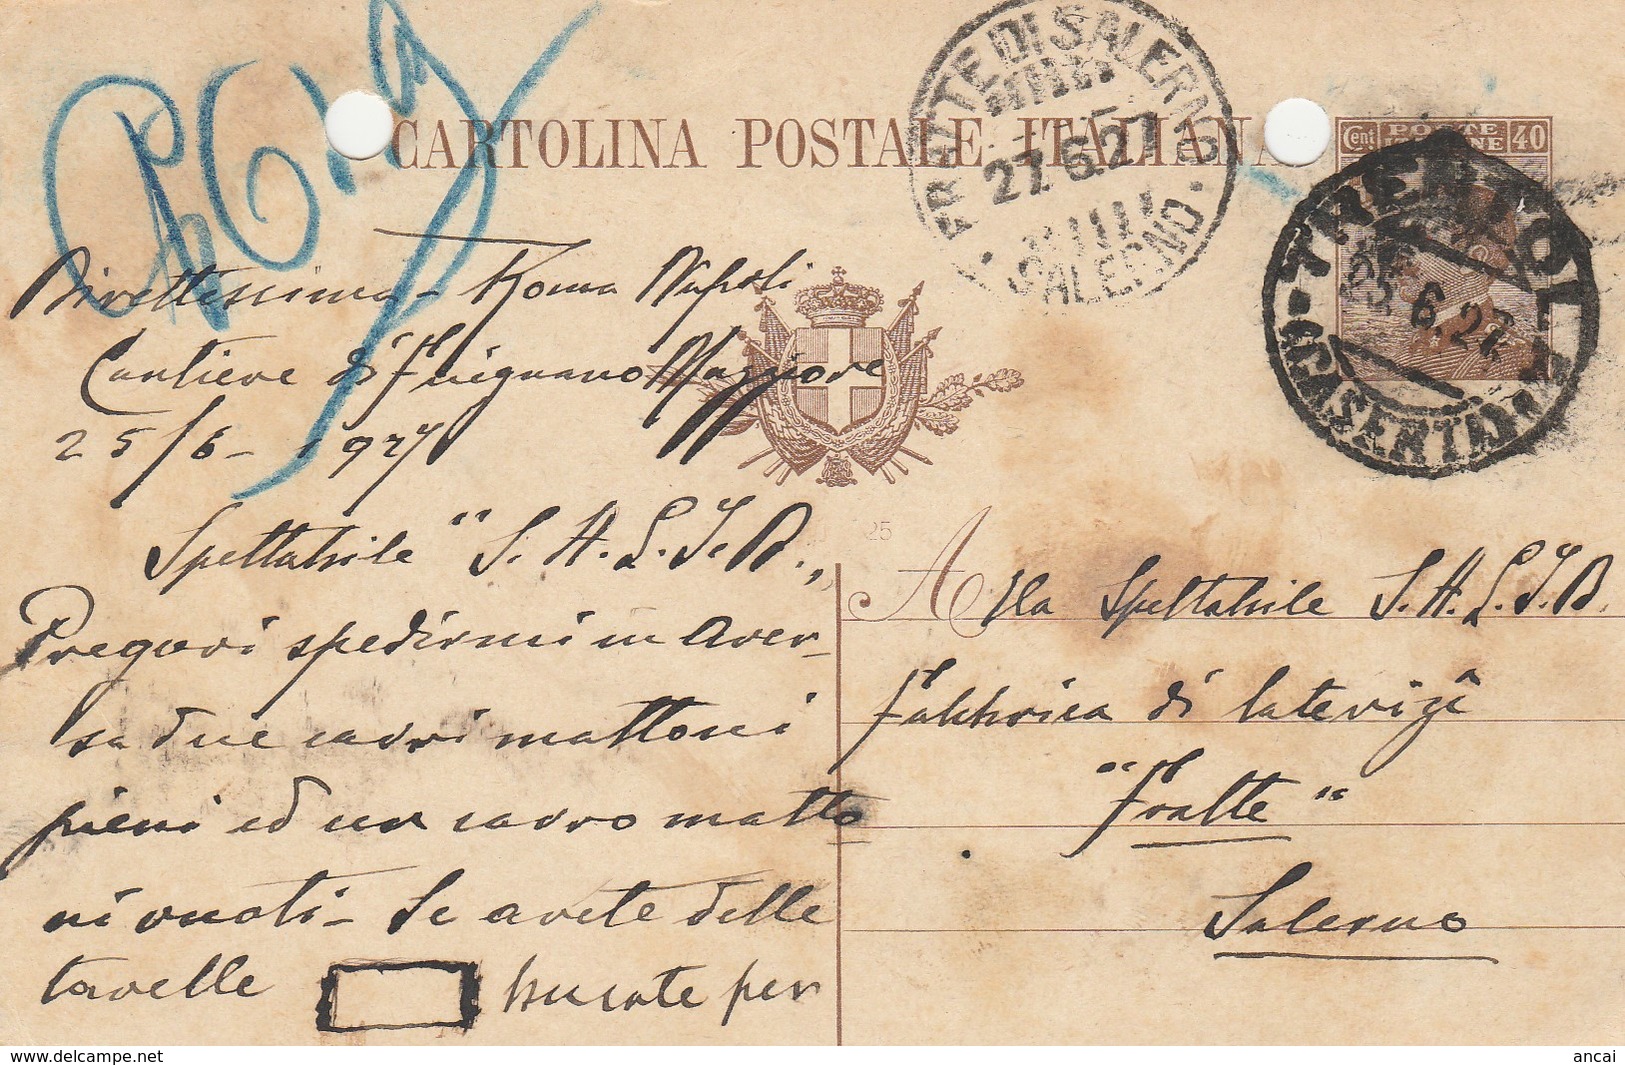 CARTOLINA POSTALE ITALIANA
Cent POSTE ITALIANE 40
FRATTE DI SALERNO
27.6.27
SALERNO
TRENTOLA
25.6.27
CASERTA
Direttissima - Roma Napoli
Cantiere di Frignano Maggiore
25/6-1927
Spettabile "S.A.L.I.B.,
Pregovi spedirmi in Aver-
sa due carri mattoni
pieni ed un carro matto
ni vuoti - Se avete delle
tavelle bucate per
25
Alla Spettabile S.A.L.I.B.
Fabbrica di laterizi
"Fratte"
Salerno
www.delcampe.net
ancai